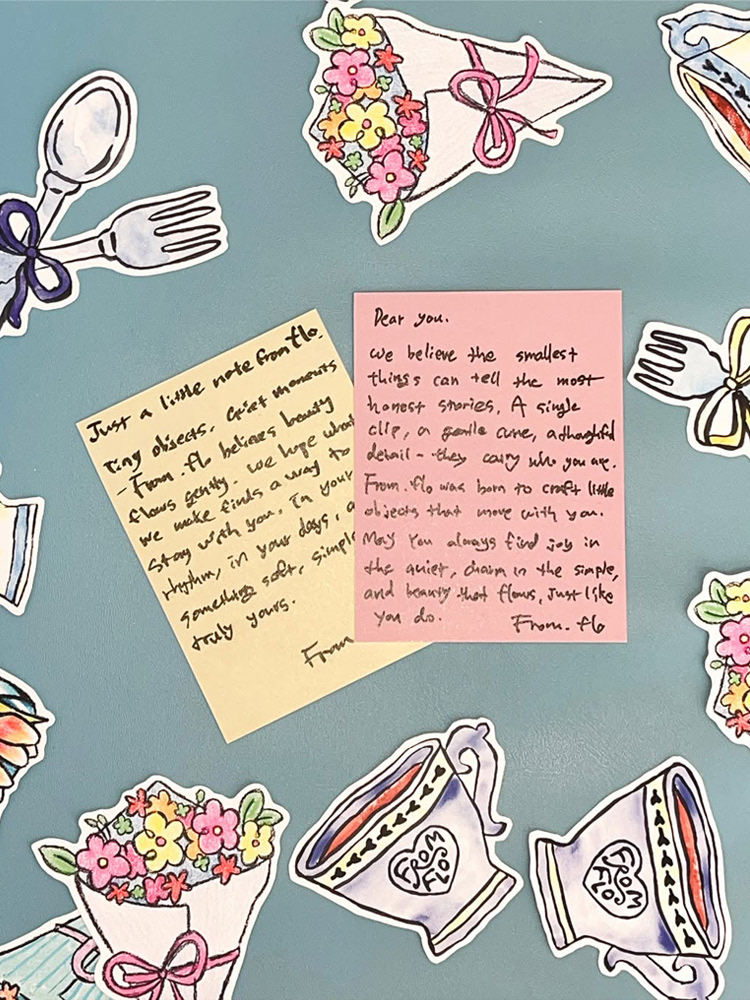 Just a little note from flo.
Tiny objects. Quiet moments
- From.flo believes beauty
flows gently. We hope what
we make finds a way to
stay with you. In your
rhythm, in your days, a
something soft, simple
truly yours.
From
Dear you.
We believe the smallest
things can tell the most
honest stories. A single
clip, a gentle curve, a thoughtful
detail - they carry who you are.
From.flo was born to craft little
objects that move with you.
May you always find joy in
the quiet, charm in the simple,
and beauty that flows, just like
you do.
From.flo
FROM
FLO
FROM
FLO